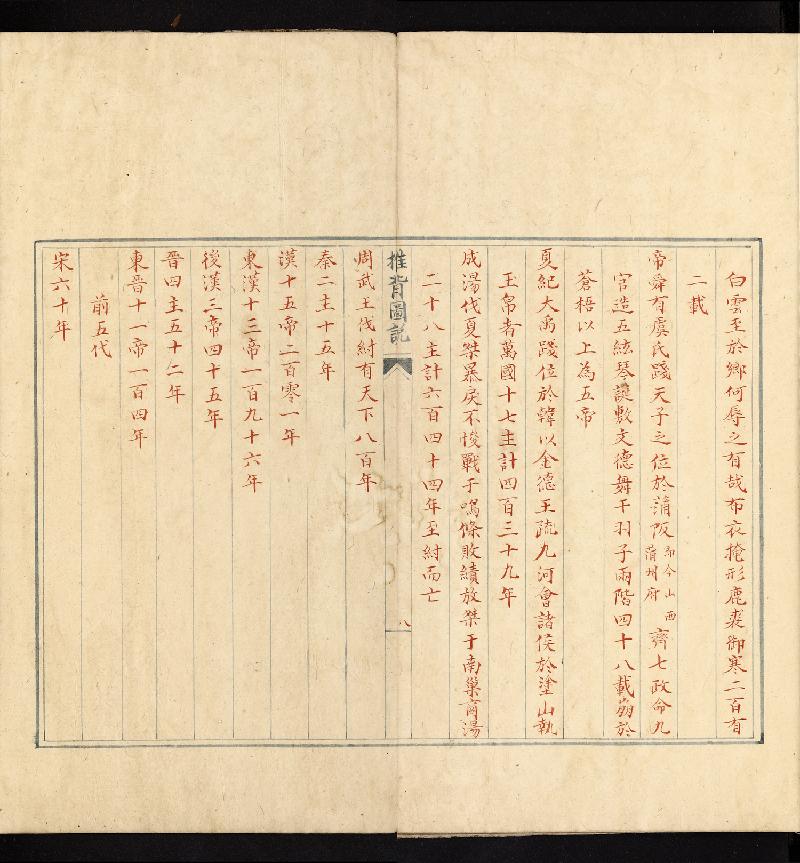 白雲至於鄉何辱之有哉布衣掩形鹿裘御寒二百有
二載
帝舜有虞氏踐天子之位於蒲阪即今山西蒲州府齊七政命九
官造五絃琴誕敷文德舞干羽于兩階四十八載崩於
蒼梧以上為五帝
夏紀大禹踐位於韓以金德王疏九河會諸侯於塗山執
玉帛者萬國十七主計四百三十九年
成湯伐夏桀暴戾不悛戰于鳴條敗績放桀于南巢商湯
二十八主計六百四十四年至紂而亡
推背圖說
八
周武王伐紂有天下八百年
秦二主十五年
漢十五帝二百零一年
東漢十三帝一百九十六年
後漢三帝四十五年
晉四主五十二年
東晉十一帝一百四年
前五代
宋六十年